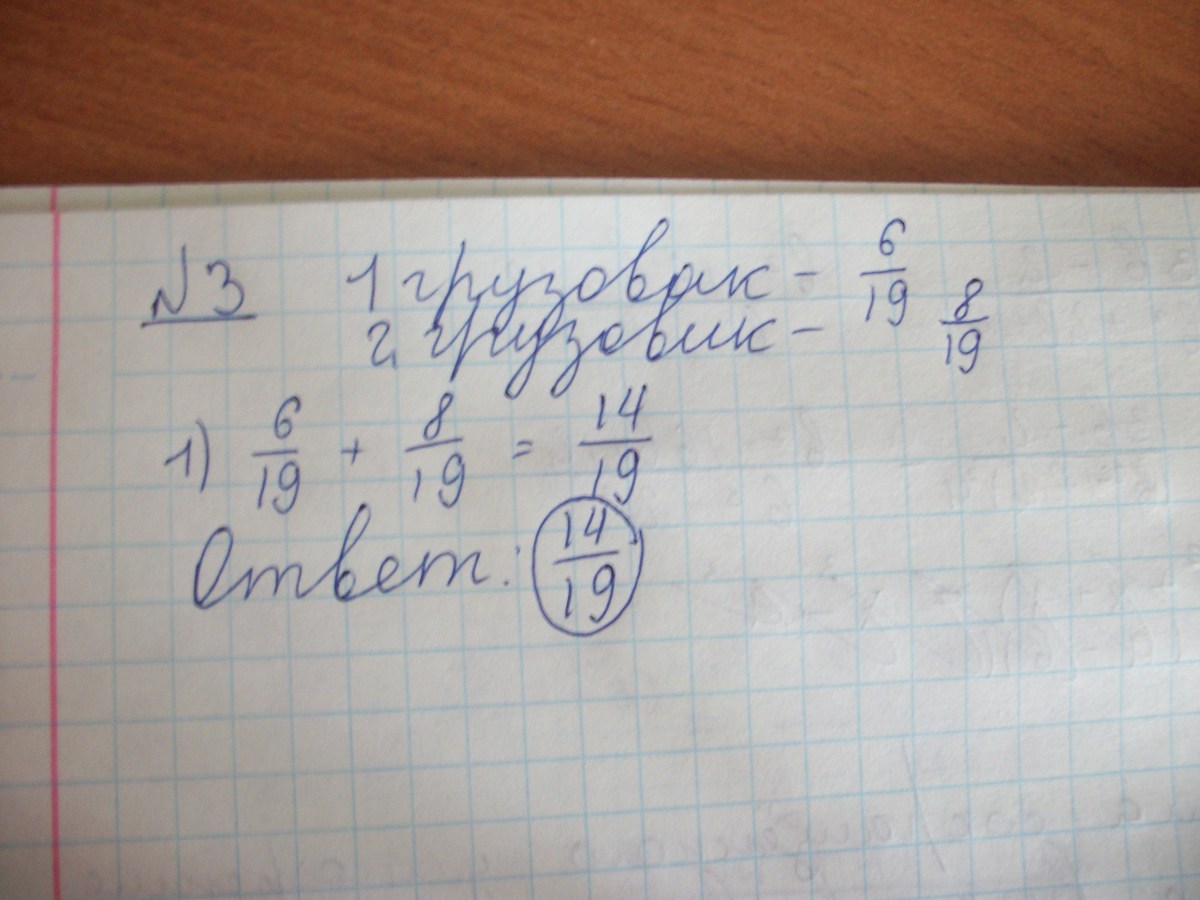 №3 1 грузовак - 6/19
2 грузовик - 8/19
1) 6/19 + 8/19 = 14/19
Ответ: 14/19